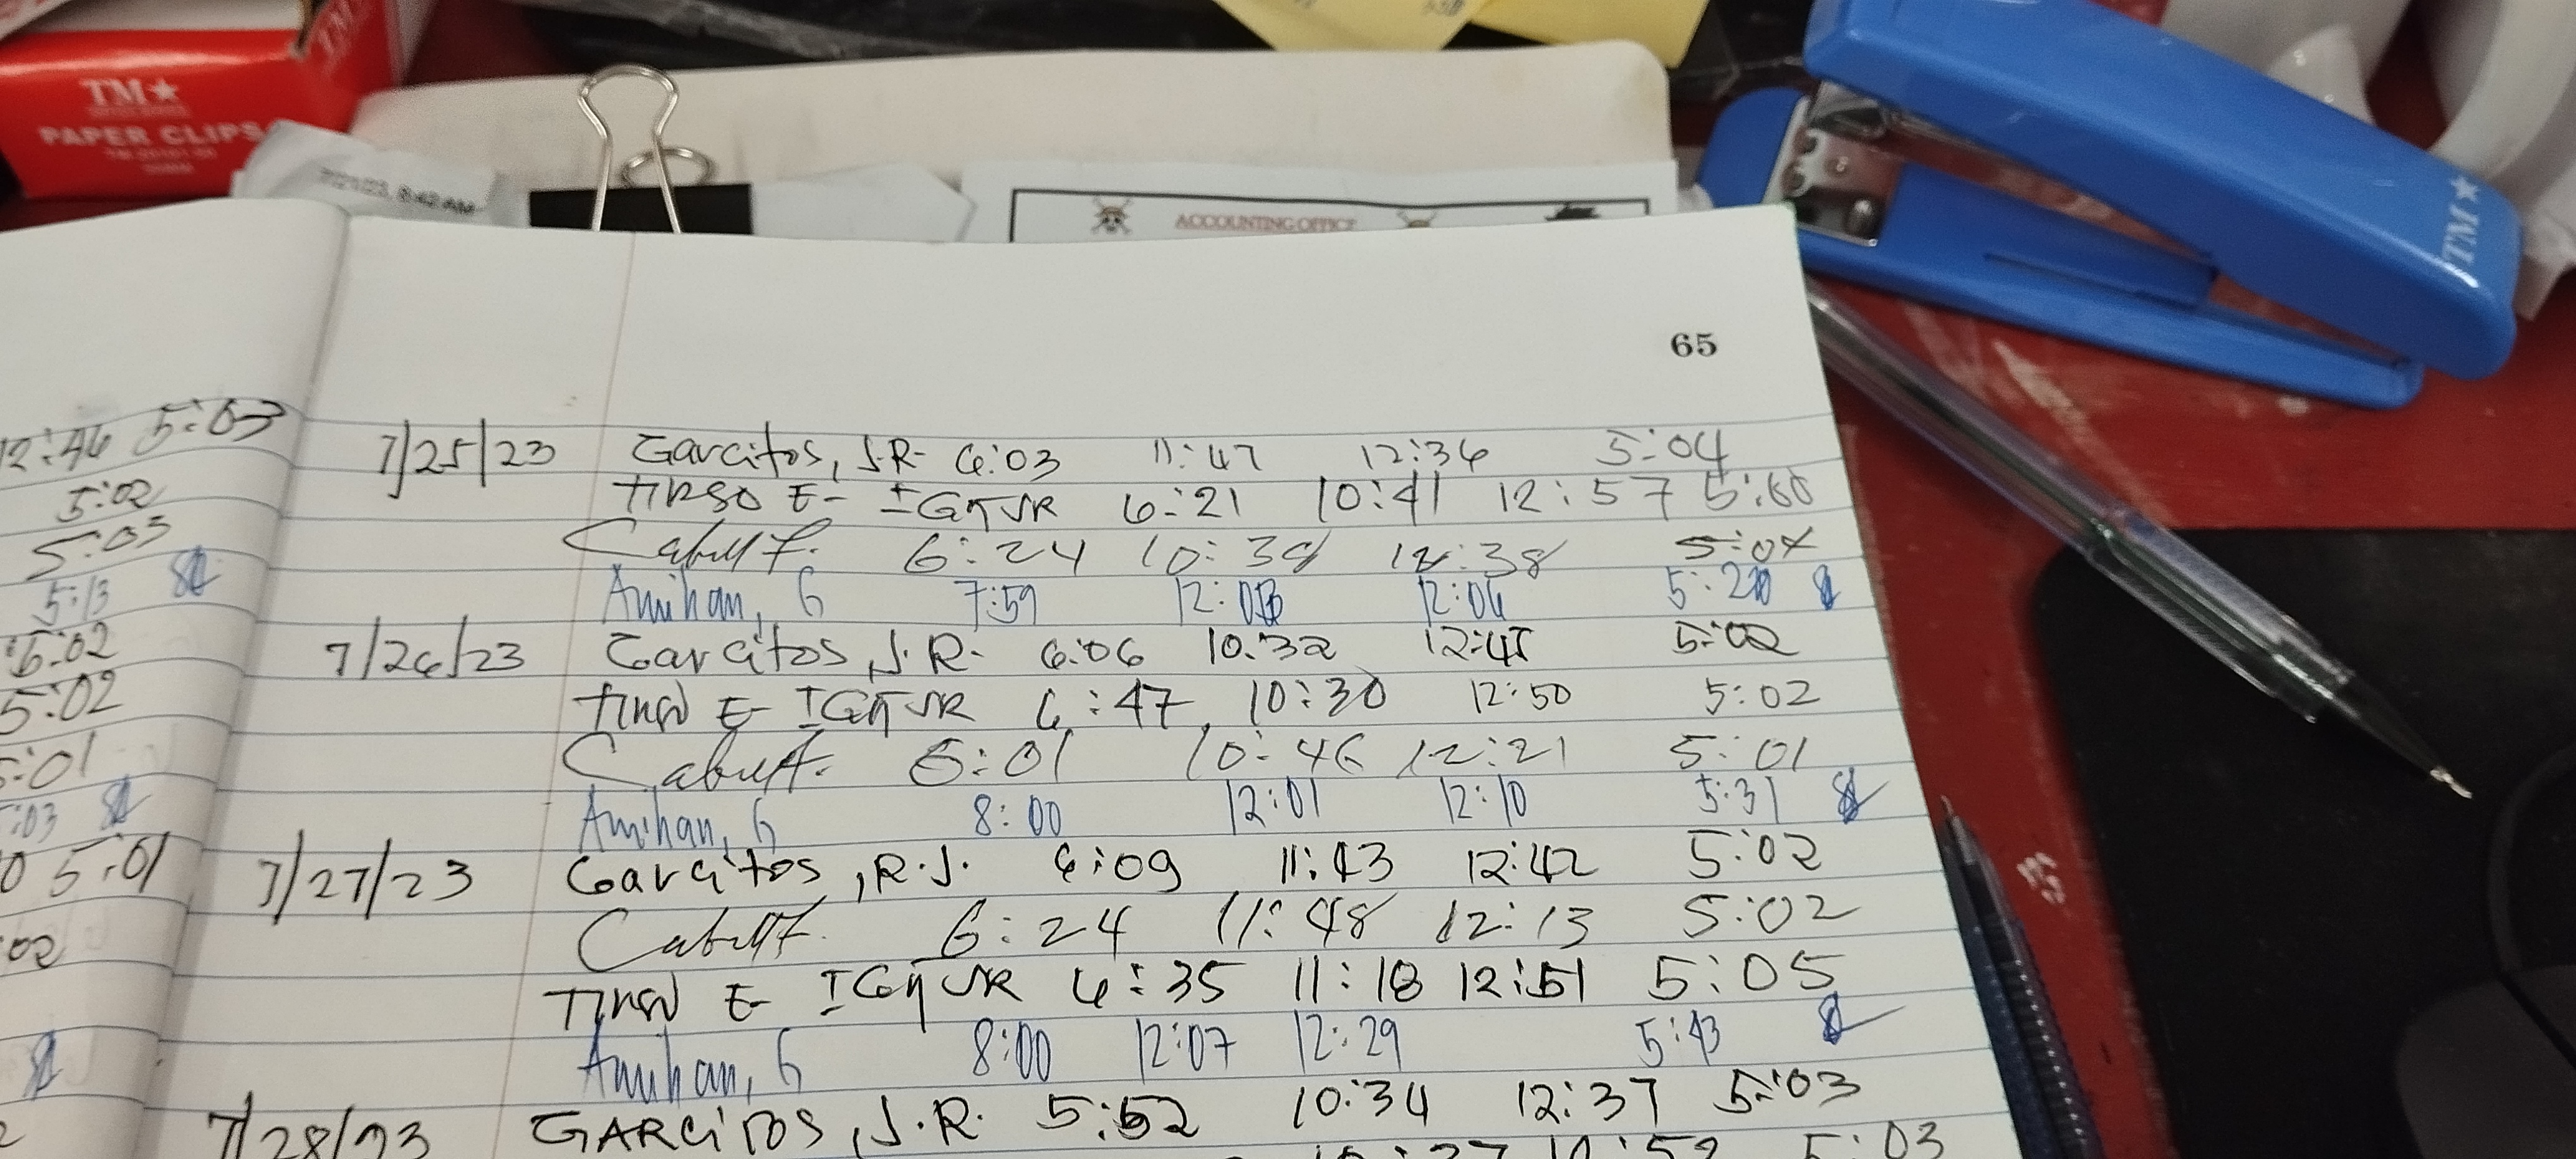 TM★
PAPER CLIPS
TM
8:42 AM
ACCOUNTING OFFICE
TM★
65
12:46 5:03
5:02
5:03
5:13
5:02
5:02
5:01
:03
0 5:01
:02
7/25/23 Garcitos, J.R. 6:03 11:47 12:36 5:04
TIRSO E- IGN JR 6:21 10:41 12:57 5:00
6:24 10:38 12:38 5:04
Amihan, G 7:59 12:03 12:06 5:20
7/26/23 Garcitos, J.R. 6:06 10:32 12:45 5:02
TIRSO E- IGN JR 6:47 10:30 12:50 5:02
6:01 10:46 12:21 5:01
Amihan, G 8:00 12:01 12:10 5:31
7/27/23 Garcitos, R.J. 6:09 11:43 12:42 5:02
6:24 11:48 12:13 5:02
TIRSO E- IGN JR 6:35 11:18 12:51 5:05
Amihan, G 8:00 12:07 12:29 5:43
7/28/23 GARCITOS, J.R. 5:52 10:34 12:37 5:03
5:03